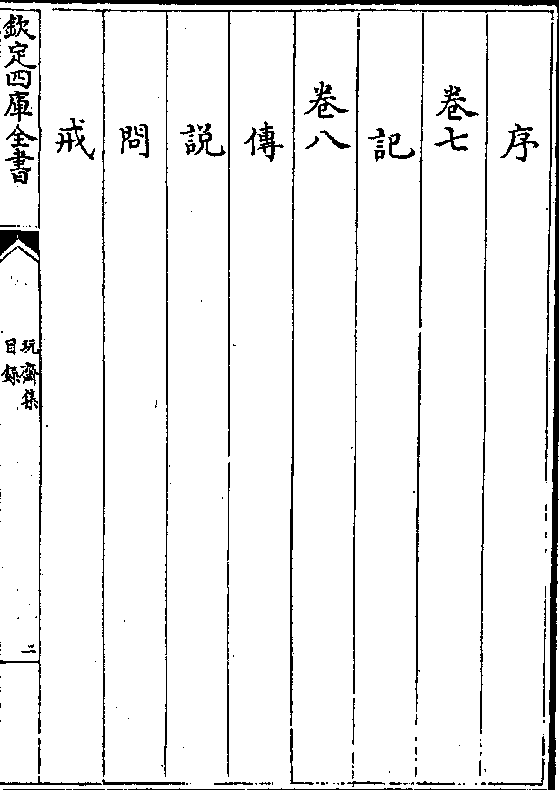 序
卷七
記
卷八
傳
說
問
戒
欽定四庫全書
玩齋集
目錄
二